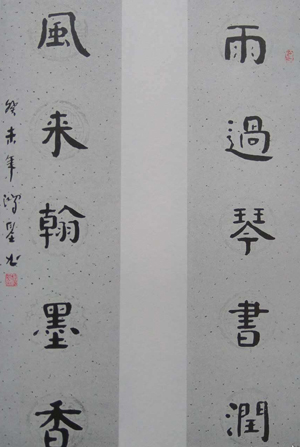 雨過琴書潤
風来翰墨香
癸未年鴻星书